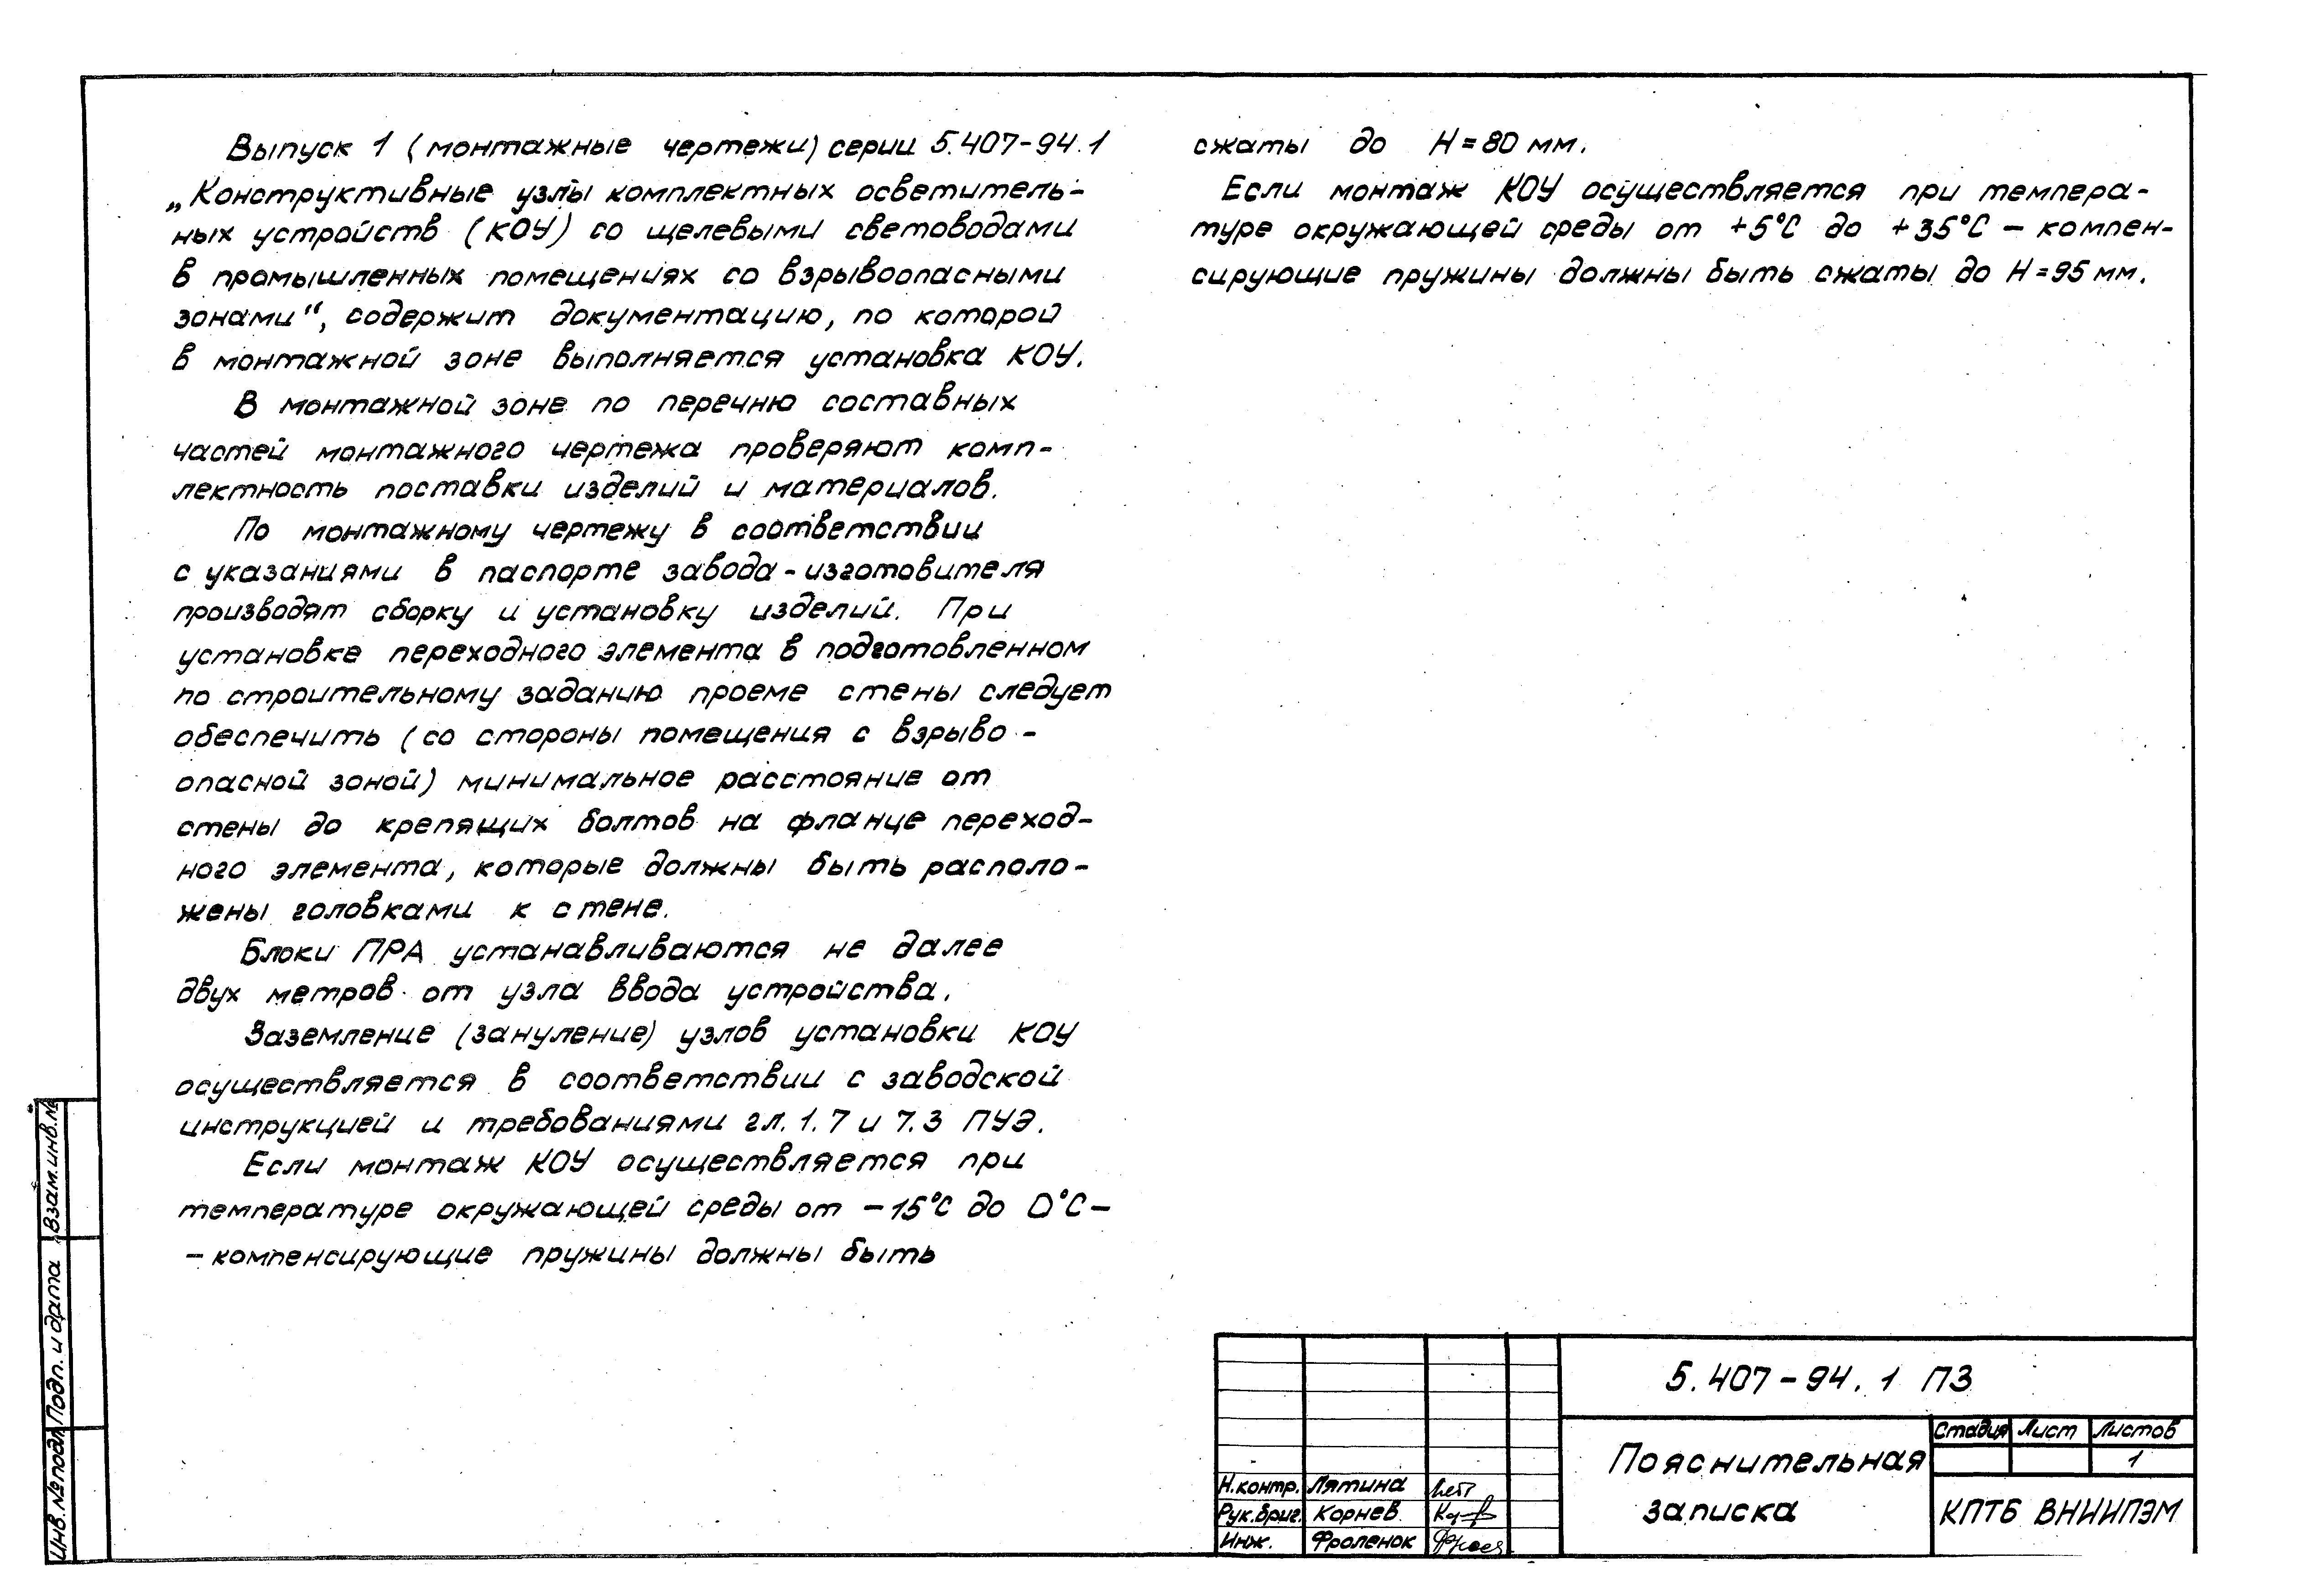 Выпуск 1 (монтажные чертежи) серии 5.407-94.1
„Конструктивные узлы комплектных осветитель-
ных устройств (КОУ) со щелевыми световодами
в промышленных помещениях со взрывоопасными
зонами“, содержит документацию, по которой
в монтажной зоне выполняется установка КОУ.
В монтажной зоне по перечню составных
частей монтажного чертежа проверяют комп-
лектность поставки изделий и материалов.
По монтажному чертежу в соответствии
с указаниями в паспорте завода-изготовителя
производят сборку и установку изделий. При
установке переходного элемента в подготовленном
по строительному заданию проеме стены следует
обеспечить (со стороны помещения с взрыво-
опасной зоной) минимальное расстояние от
стены до крепящих болтов на фланце переход-
ного элемента, которые должны быть располо-
жены головками к стене.
Блоки ПРА устанавливаются не далее
двух метров от узла ввода устройства.
Заземление (зануление) узлов установки КОУ
осуществляется в соответствии с заводской
инструкцией и требованиями гл. 1.7 и 7.3 ПУЭ.
Если монтаж КОУ осуществляется при
температуре окружающей среды от -15°С до 0°С-
- компенсирующие пружины должны быть
сжаты до Н=80 мм.
Если монтаж КОУ осуществляется при темпера-
туре окружающей среды от +5°С до +35°С - компен-
сирующие пружины должны быть сжаты до Н=95 мм.
Взам.инв.№
Подп. и дата
Инв.№подл
5.407-94.1 ПЗ
Пояснительная
записка
Стадия Лист Листов
1
КПТБ ВНИИПЭМ
Н.контр. Лятина
Рук.бриг. Корнев
Инж. Фроленок